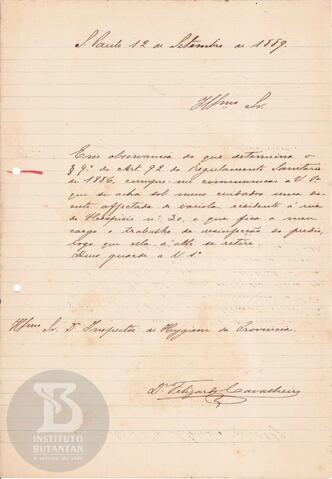 S. Paulo 12 de Setembro de 1889.
Illmo Sr.
Em observancia do que determina o
§ 9º do Art 92 do Regulamento Sanitario
de 1886, cumpre-me communicar a V. Sª
que se acha sob meus cuidados uma do
ente affectada de variola, residente á rua
do Hospicio nº 30, e que fica a meu
cargo o trabalho de desinfecção do predio,
logo que ella d'alli se retire.
Deus guarde a V. Sª
Illmo Sr. Dr. Inspector de Hygiene da Provincia.
Dr. Felizardo Cavalheiro
INSTITUTO
BUTANTAN
A serviço da vida